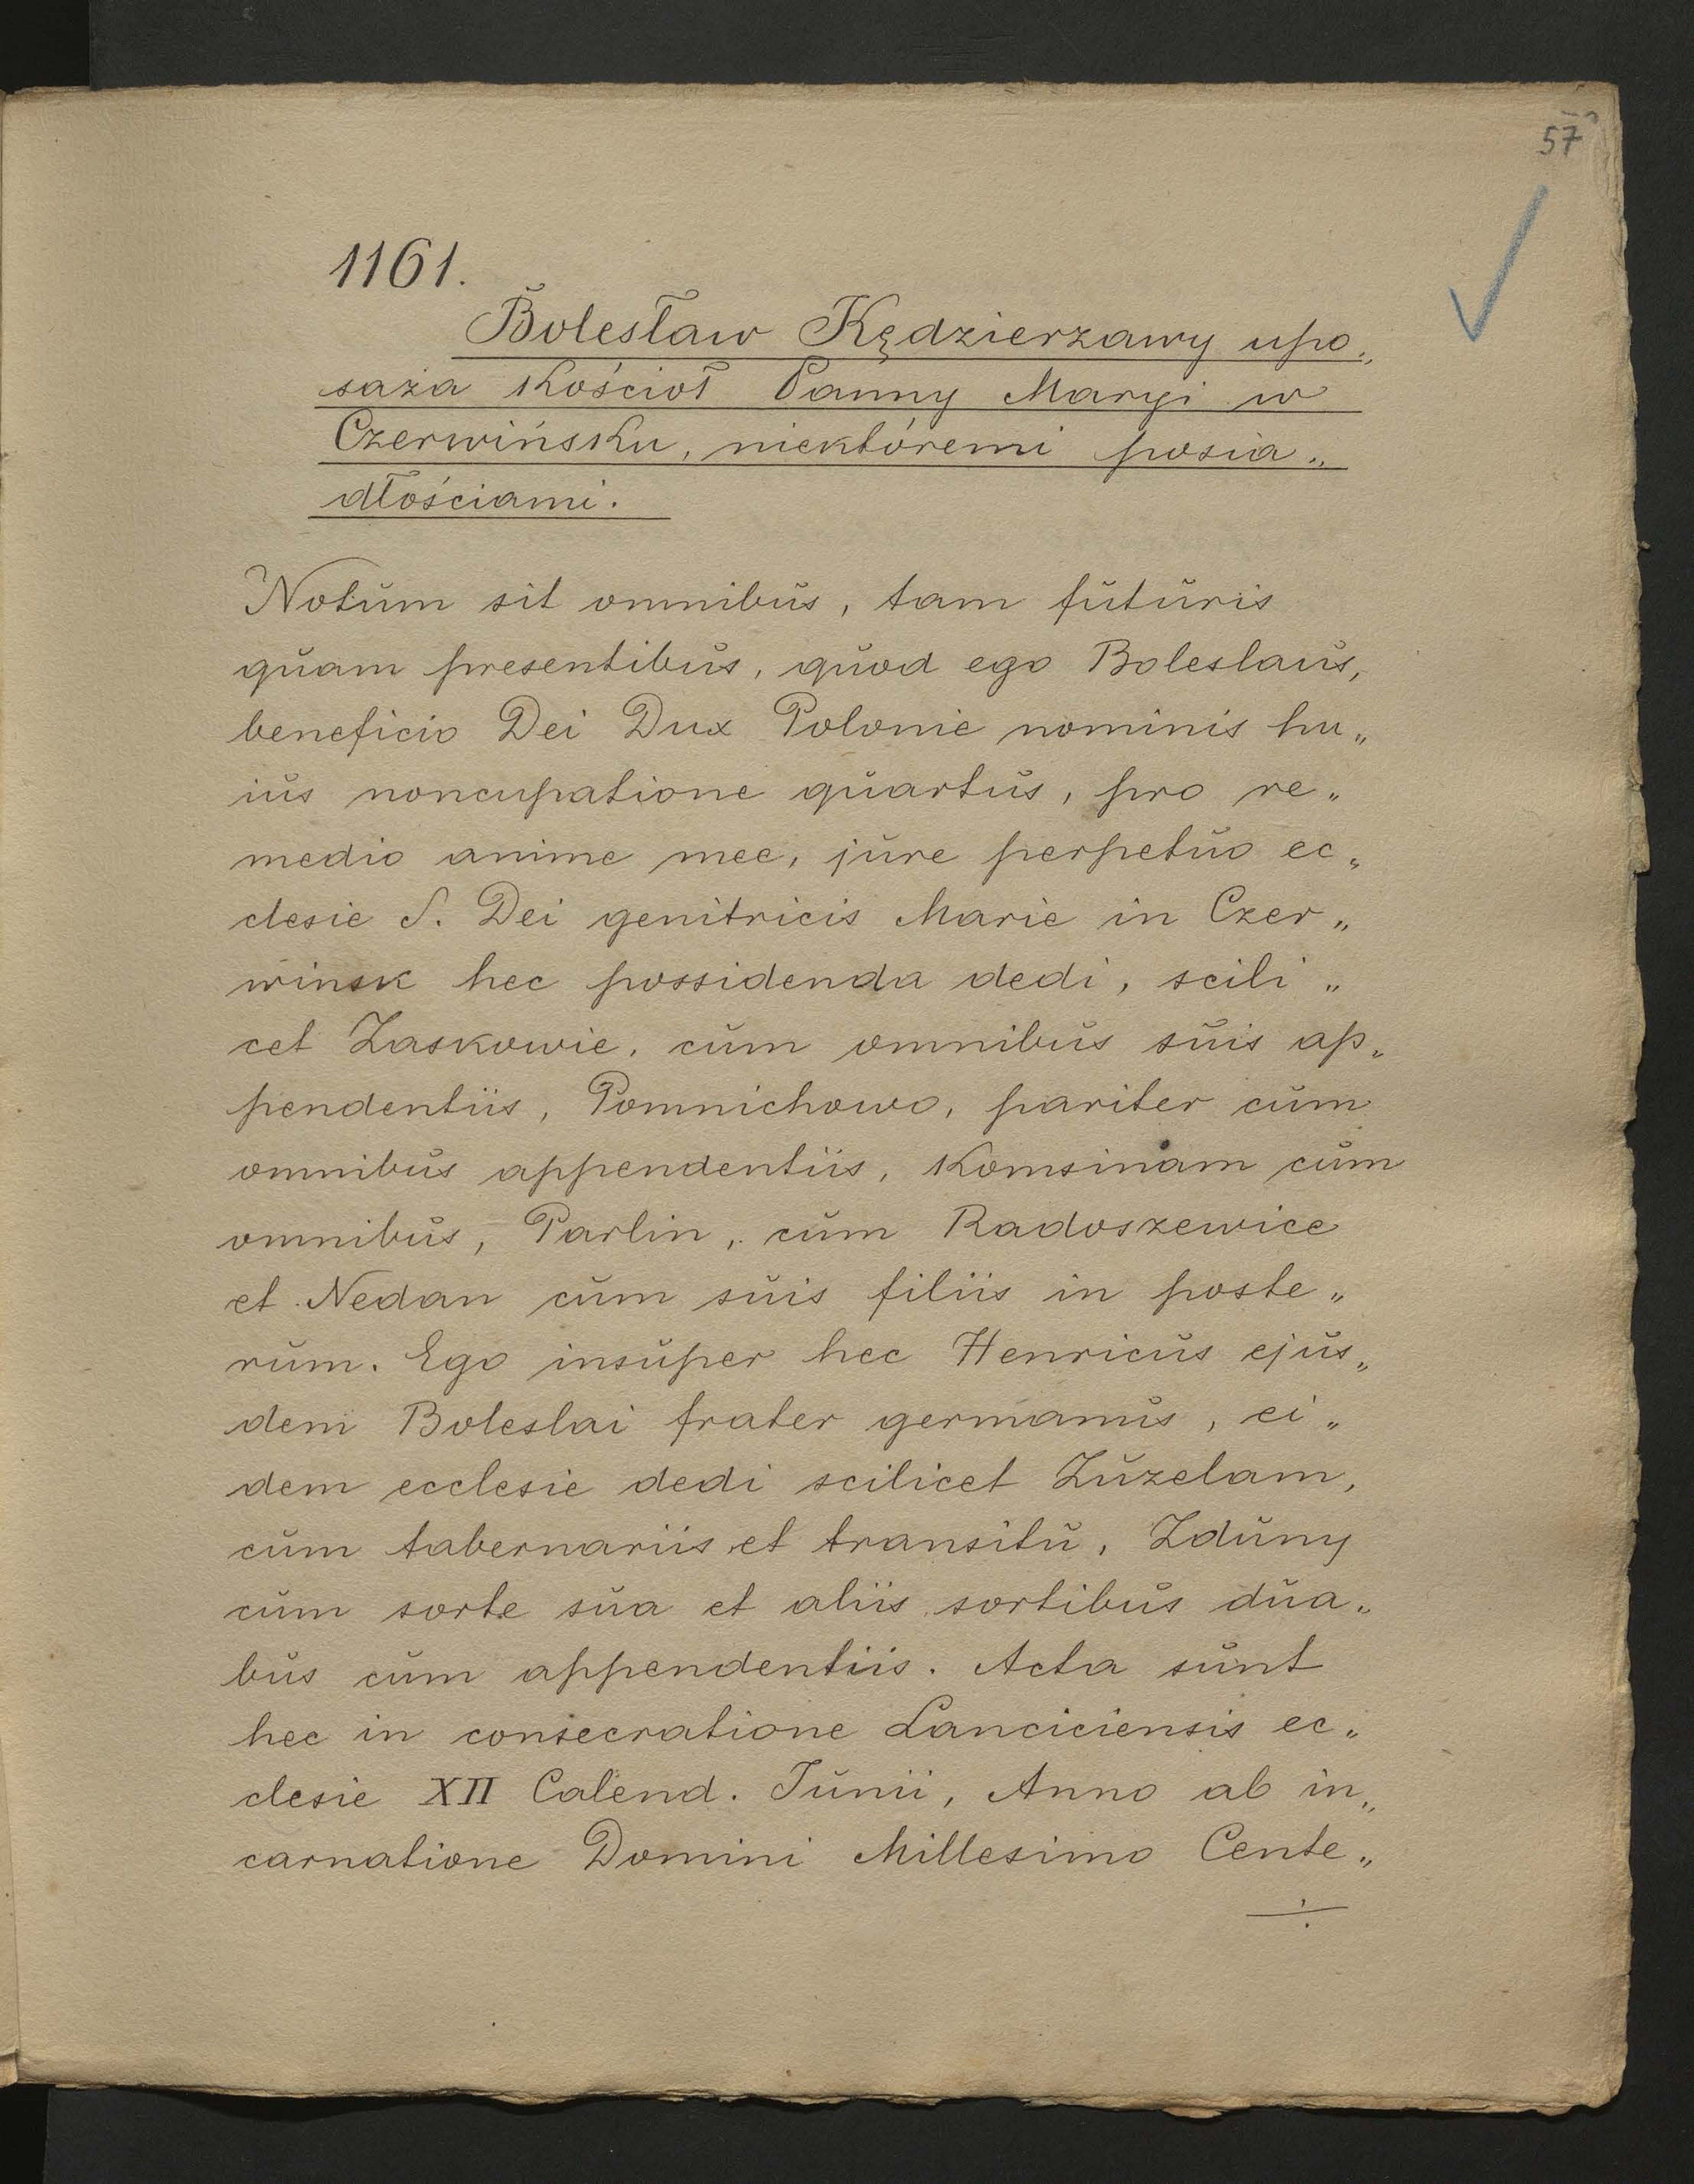 57
1161.
Bolesław Kędzierzawy upo„
saża Kościoł Panny Maryi w
Czerwińsku, niektóremi posia„
dłościami.
Notŭm sit omnibŭs, tam fŭtŭris
qŭam presentibŭs, qŭod ego Boleslaŭs,
beneficio Dei Dux Polonie nominis hu„
iŭs noncupatione qŭartŭs, pro re„
medio anime mee, jŭre perpetŭo ec„
clesie S. Dei genitricis Marie in Czer„
winsk hec possidenda dedi, scili„
cet Zaskowie, cŭm omnibŭs sŭis ap„
pendentiis, Pomnichowo, pariter cŭm
omnibŭs appendentiis, Komsinam cŭm
omnibŭs, Parlin, cŭm Radoszewice
et Nedan cŭm sŭis filiis in poste„
rŭm. Ego insŭper hec Henricŭs ejŭs„
dem Boleslai frater germanŭs, ei„
dem ecclesie dedi scilicet Zŭzelam,
cŭm tabernariis et transitŭ, Zdŭny
cŭm sorte sŭa et aliis sortibŭs dŭa„
bŭs cŭm appendentiis. Acta sŭnt
hec in consecratione Lanciciensis ec„
clesie XII Calend. Jŭnii, Anno ab in„
carnatione Domini Millesimo Cente„